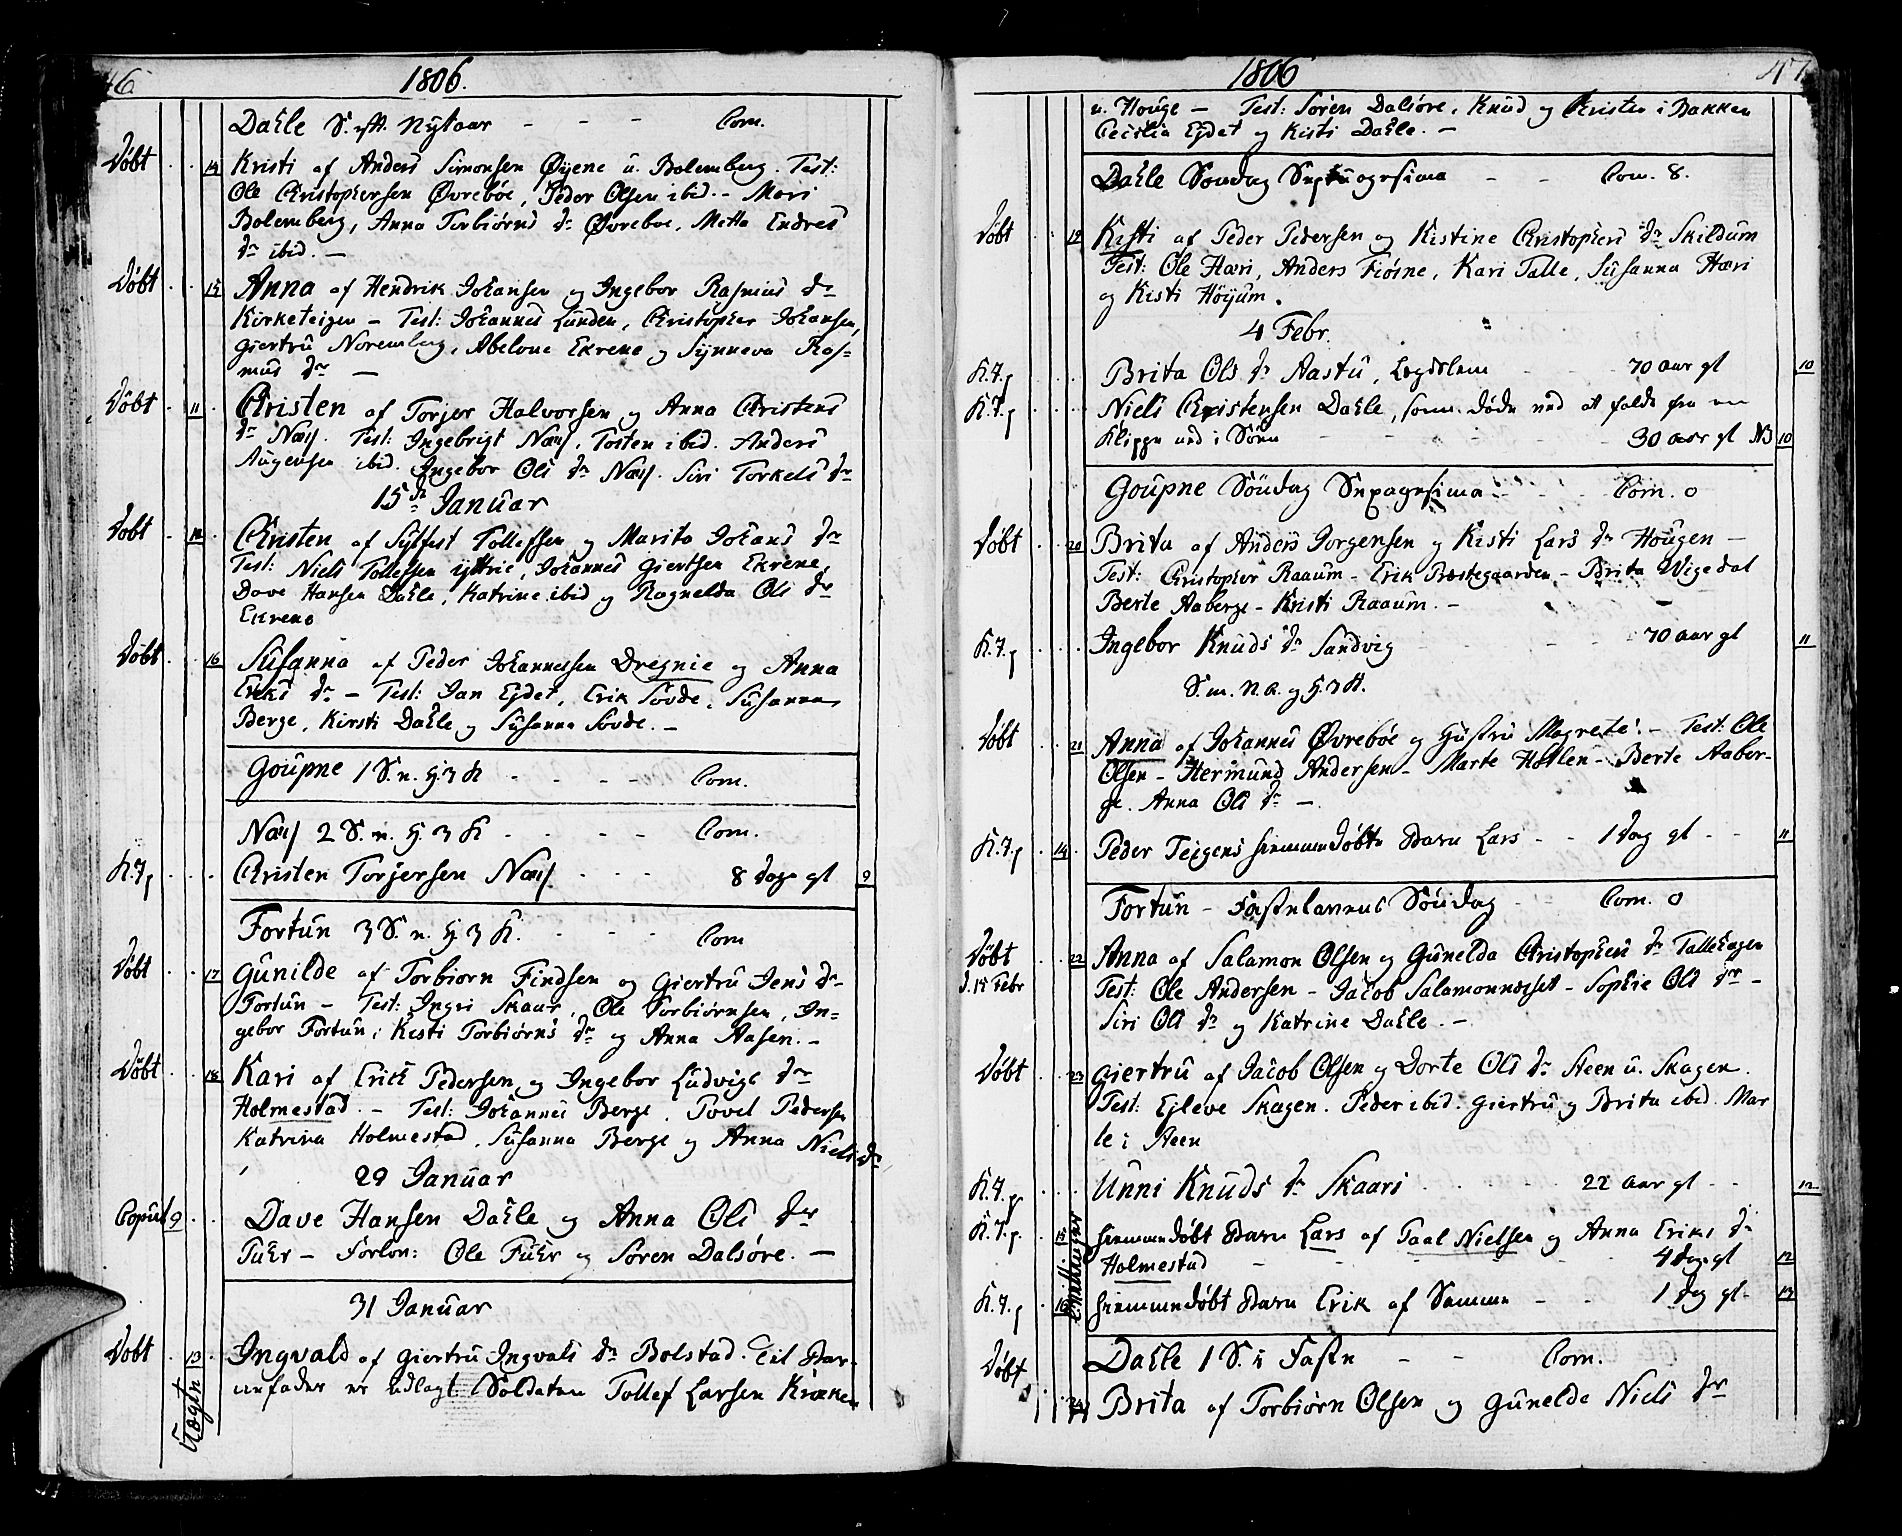 46
1806.
Dahle S. eft. Nytaar - - - Com.
Døbt 14 Kristi af Anders Simonsen Øyene u. Bolemberg. Test:
Ole Christophersen Øvreboe, Peder Olsen ibid. - Mari
Bolemberg, Anna Torbiørns dr Øvreboe, Metta Endres
dr ibid. -
Døbt 15 Anna af Hendrik Johansen og Ingebor Rasmus dr
Kirketeigen - Test: Johannes Lunden, Christopher Johansen,
Giertru Noremberg, Abelone Ekrene og Synneva Ras-
mus dr -
Døbt 11 Christen af Torjer Halvorsen og Anna Christens
dr Næss. Test: Ingebrigt Næss, Tosten ibid. Anders
Augensen ibid. Ingebor Ols dr Næss. Siri Torkels dr
15de Januar
Døbt 12 Christen af Sylfest Tollefsen og Marita Johans dr
Test: Niels Tollefsen yttrie, Johannes Giertsen Ekrene,
Dave Hansen Dahle, Katrine ibid og Ragnelda Ols dr
Ekrene
Døbt 16 Susanna af Peder Johannessen Dregnie og Anna
Eriks dr - Test: Jan Eydet, Erik Sovde, Susanna
Berge, Kirsti Dahle og Susanna Sovde. -
Goupne 1 S. n. H. 3 K - - - Com.
Næss 2 S. n. H. 3 K - - - Com.
K. 7. p Christen Torjersen Næss - - - 8 dage gl 9
Fortun 3 S. n. H. 3 K. - - - Com
Døbt 17 Gunilde af Torbiorn Findsen og Giertru Jens dr
Fortun - Test: Ingri Skaar, Ole Torbiørnsen, In-
gebor Fortun, Kisti Torbiørns dr og Anna Aasen. -
Døbt 18 Kari af Erich Pedersen og Ingebor Ludvigs dr
Holmestad. - Test: Johannes Berge. Povel Pedersen
Katrina Holmestad, Susanna Berge og Anna Niels dr
29 Januar
Copul 9 Dave Hansen Dahle og Anna Ols dr
Fuhr - Forlov: Ole Fuhr og Søren Dalsøre. -
31 Januar
Døbt 13 Ingvald af Giertru Ingvals dr Bolstad. Til Bar-
nefader er udlagt Soldaten Tollef Larsen Kroken
Uægte
47
1806
u. Houge - Test: Søren Dalsøre, Knud og Christen i Bakken
Cecilia Eydet og Kisti Dahle. -
Dahle Søndag Septuagesima - - Com. 8.
Døbt 19 Kisti af Peder Pedersen og Kistine Christophers dr Skildum
Test: Ole Hæri, Anders Fiøsne, Kari Talle, Susanna Hæri
og Kisti Høyum.
4 Febr.
K. 7. p Brita Ols dr Aastu, Lægdslem - - 70 aar gl 10
K. 7. p Niels Christensen Dahle, som døde ved at falde fra en
Klippe ned i Søen - - - 30 aar gl NB 10
Goupne Søndag Sexagesima - - Com. 0
Døbt 20 Brita af Anders Jorgensen og Kisti Lars dr Hougen -
Test: Christopher Raaum - Erik Præstegaarden - Brita Wigedal
Berte Aaberge - Kristi Raaum. -
K. 7. p Ingebor Knuds dr Sandvig - - 70 aar gl 11
S. m. N. A. og H. 3 K.
Døbt 21 Anna af Johannes Øvreboe og Hustru Magrete. - Test: Ole
Olsen - Hermund Andersen - Marte Hollen - Berte Aaber-
ge. Anna Ols dr -
K. 7. p 14 Peder Teigens hiemmedøbte Barn Lars - - 1 dag gl - - 11
Fortun - Fastelavens Søndag - Com. 0
Døbt
d. 15 Febr 22 Anna af Salamon Olsen og Gunelda Christophers dr Tallehagen
Test: Ole Andersen - Jacob Salamonnæset - Sophie Ols dr -
Siri Ols dr og Katrine Dahle. -
Døbt 23 Giertru af Jacob Olsen og Dorte Ols dr Steen u. Skagen.
Test: Ejleve Skagen. Peder ibid. Giertru og Brita ibid. Mar
te i Steen
K. 7. p Unni Knuds dr Skaari - - - 22 aar gl - - 12
K. 7. p 15 hiemmedøbt Barn Lars af Paal Nielsen og Anna Eriks dr
Holmestad - - - 4 dage gl 12
K. 7. p 16 hiemmedøbt Barn Erik af Samme - - 1 dag gl - 13
Dahle 1 S. i Faste - - Com.
Døbt 24 Brita af Torbiørn Olsen og Gunelde Niels dr